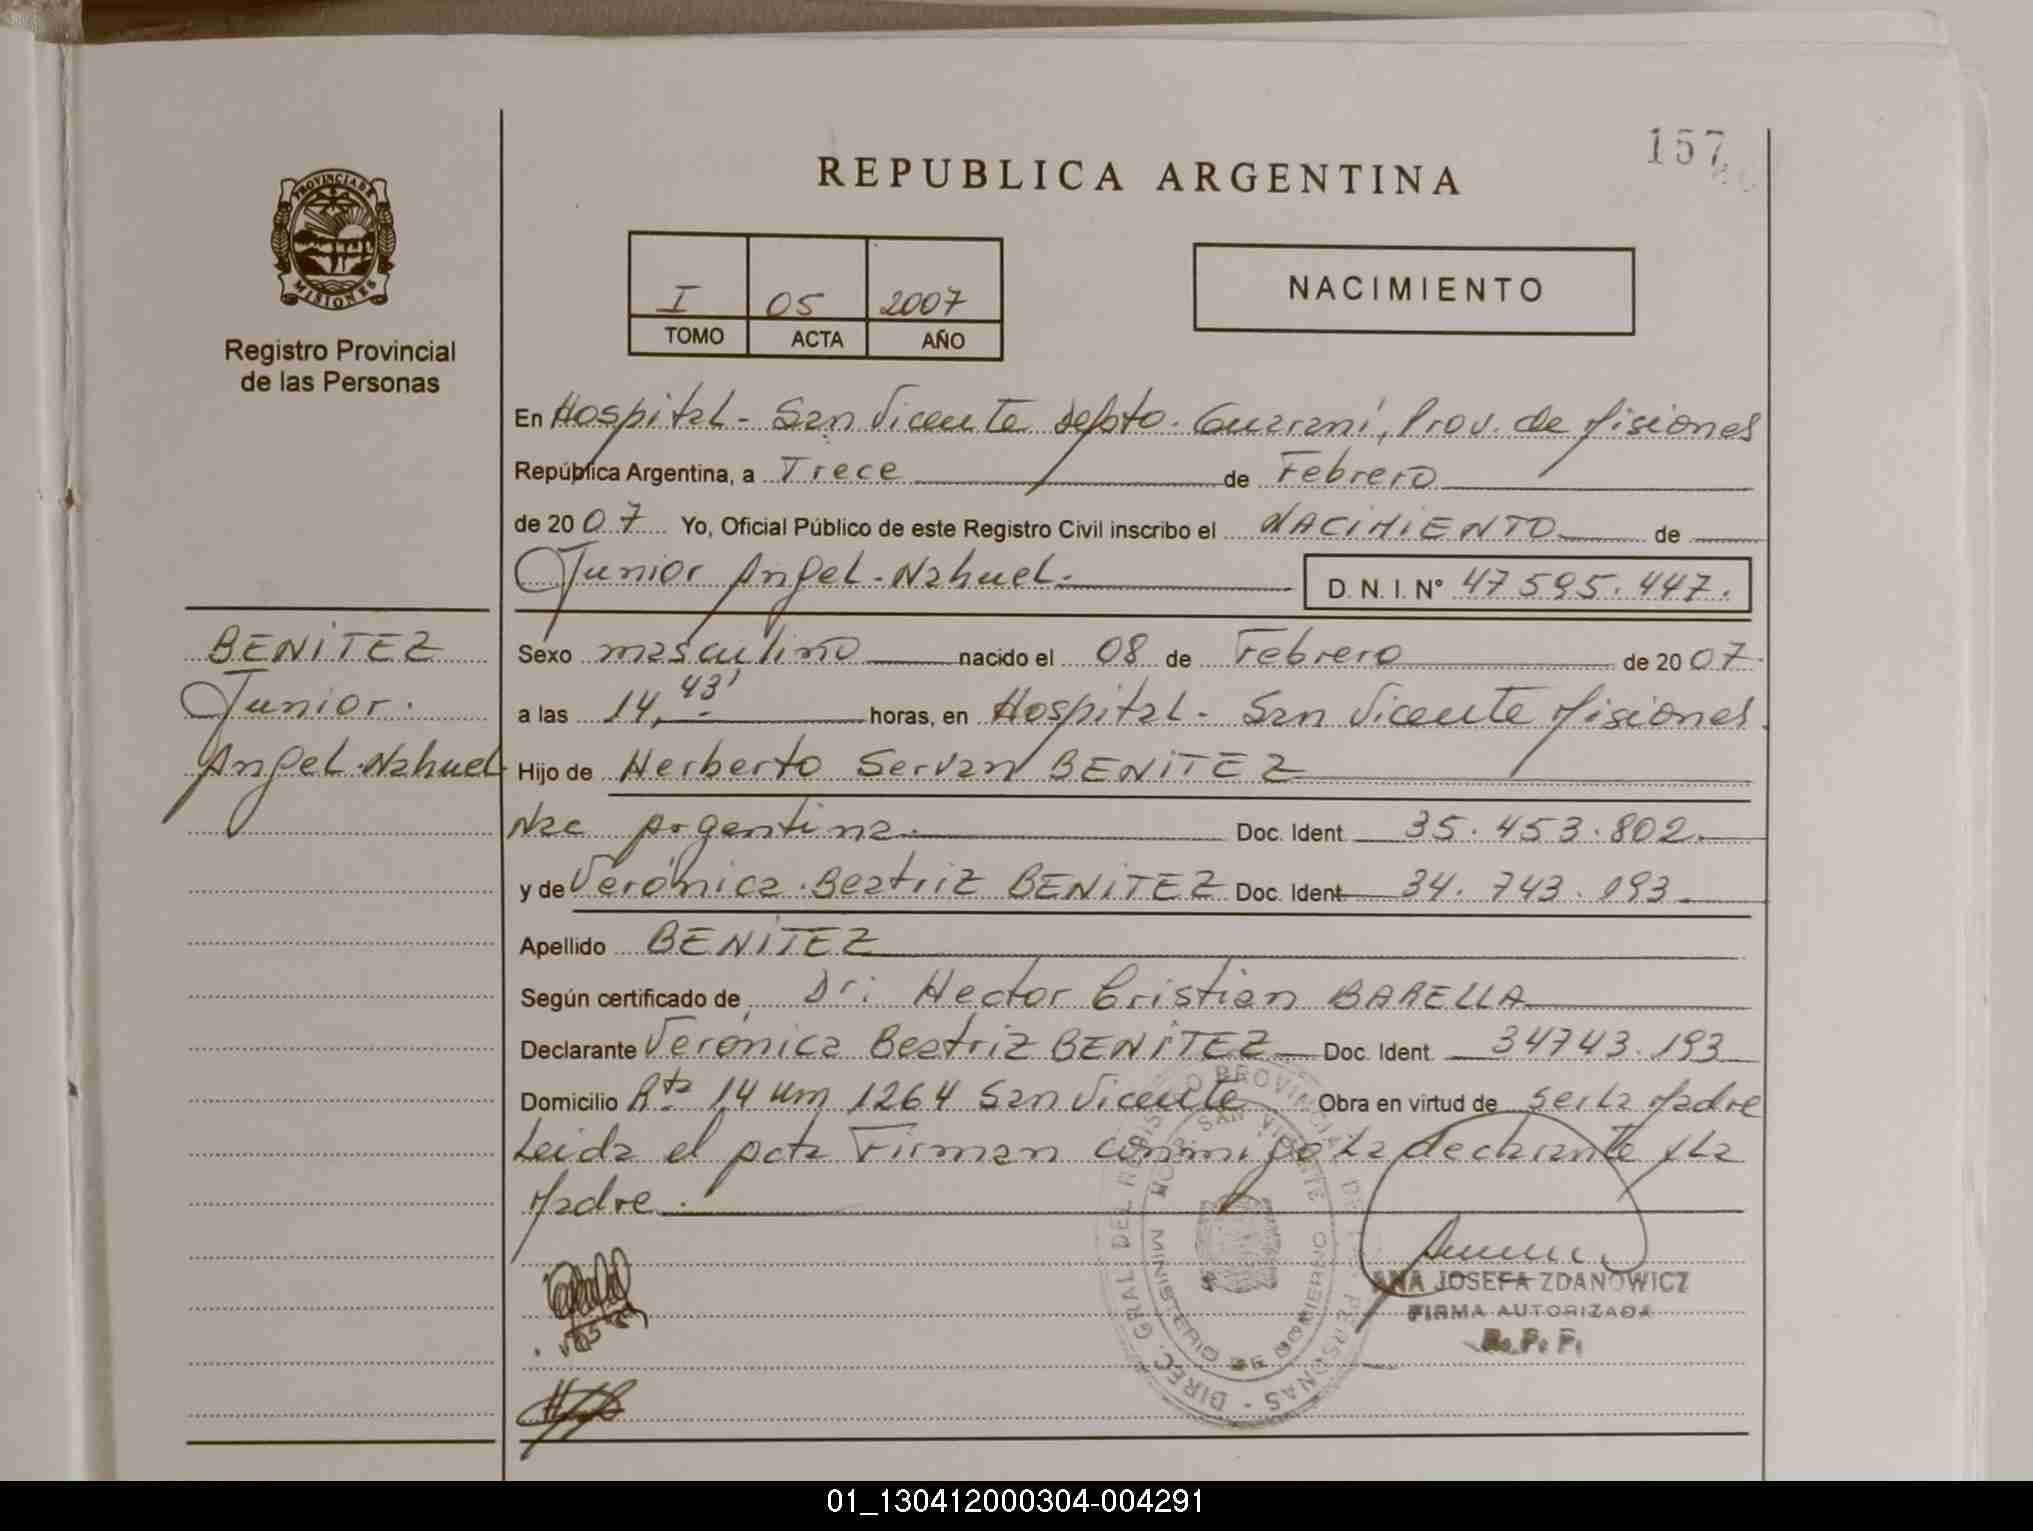 157
REPUBLICA ARGENTINA
PROVINCIA DE
MISIONES
Registro Provincial
de las Personas
I 05 2007
TOMO ACTA AÑO
NACIMIENTO
En Hospital - San Vicente depto. Guarani, Prov. de Misiones
República Argentina, a Trece de Febrero
de 2007 Yo, Oficial Público de este Registro Civil inscribo el NACIMIENTO de
Junior Angel - Nahuel - D. N. I. N° 47595.447.
BENITEZ
Junior.
Angel - Nahuel
Sexo masculino nacido el 08 de Febrero de 2007.
a las 14,43' horas, en Hospital - San Vicente Misiones.
Hijo de Herberto Servan BENITEZ
Nac Argentina. Doc. Ident. 35.453.802.
y de Verónica Beatriz BENITEZ Doc. Ident. 34.743.193.
Apellido BENITEZ
Según certificado de Dr: Hector Cristian BARELLA
Declarante Verónica Beatriz BENITEZ Doc. Ident. 34743.193
Domicilio Rta 14 Km 1264 San Vicente Obra en virtud de ser la Madre
Leida el acta Firman conmigo la declarante y la
Madre.
DIREC. GRAL. DEL REGISTRO PROVINCIAL DE LAS PERSONAS
SAN VICENTE
MINISTERIO DE GOBIERNO
ANA JOSEFA ZDANOWICZ
FIRMA AUTORIZADA
R. P. P.
01_130412000304-004291